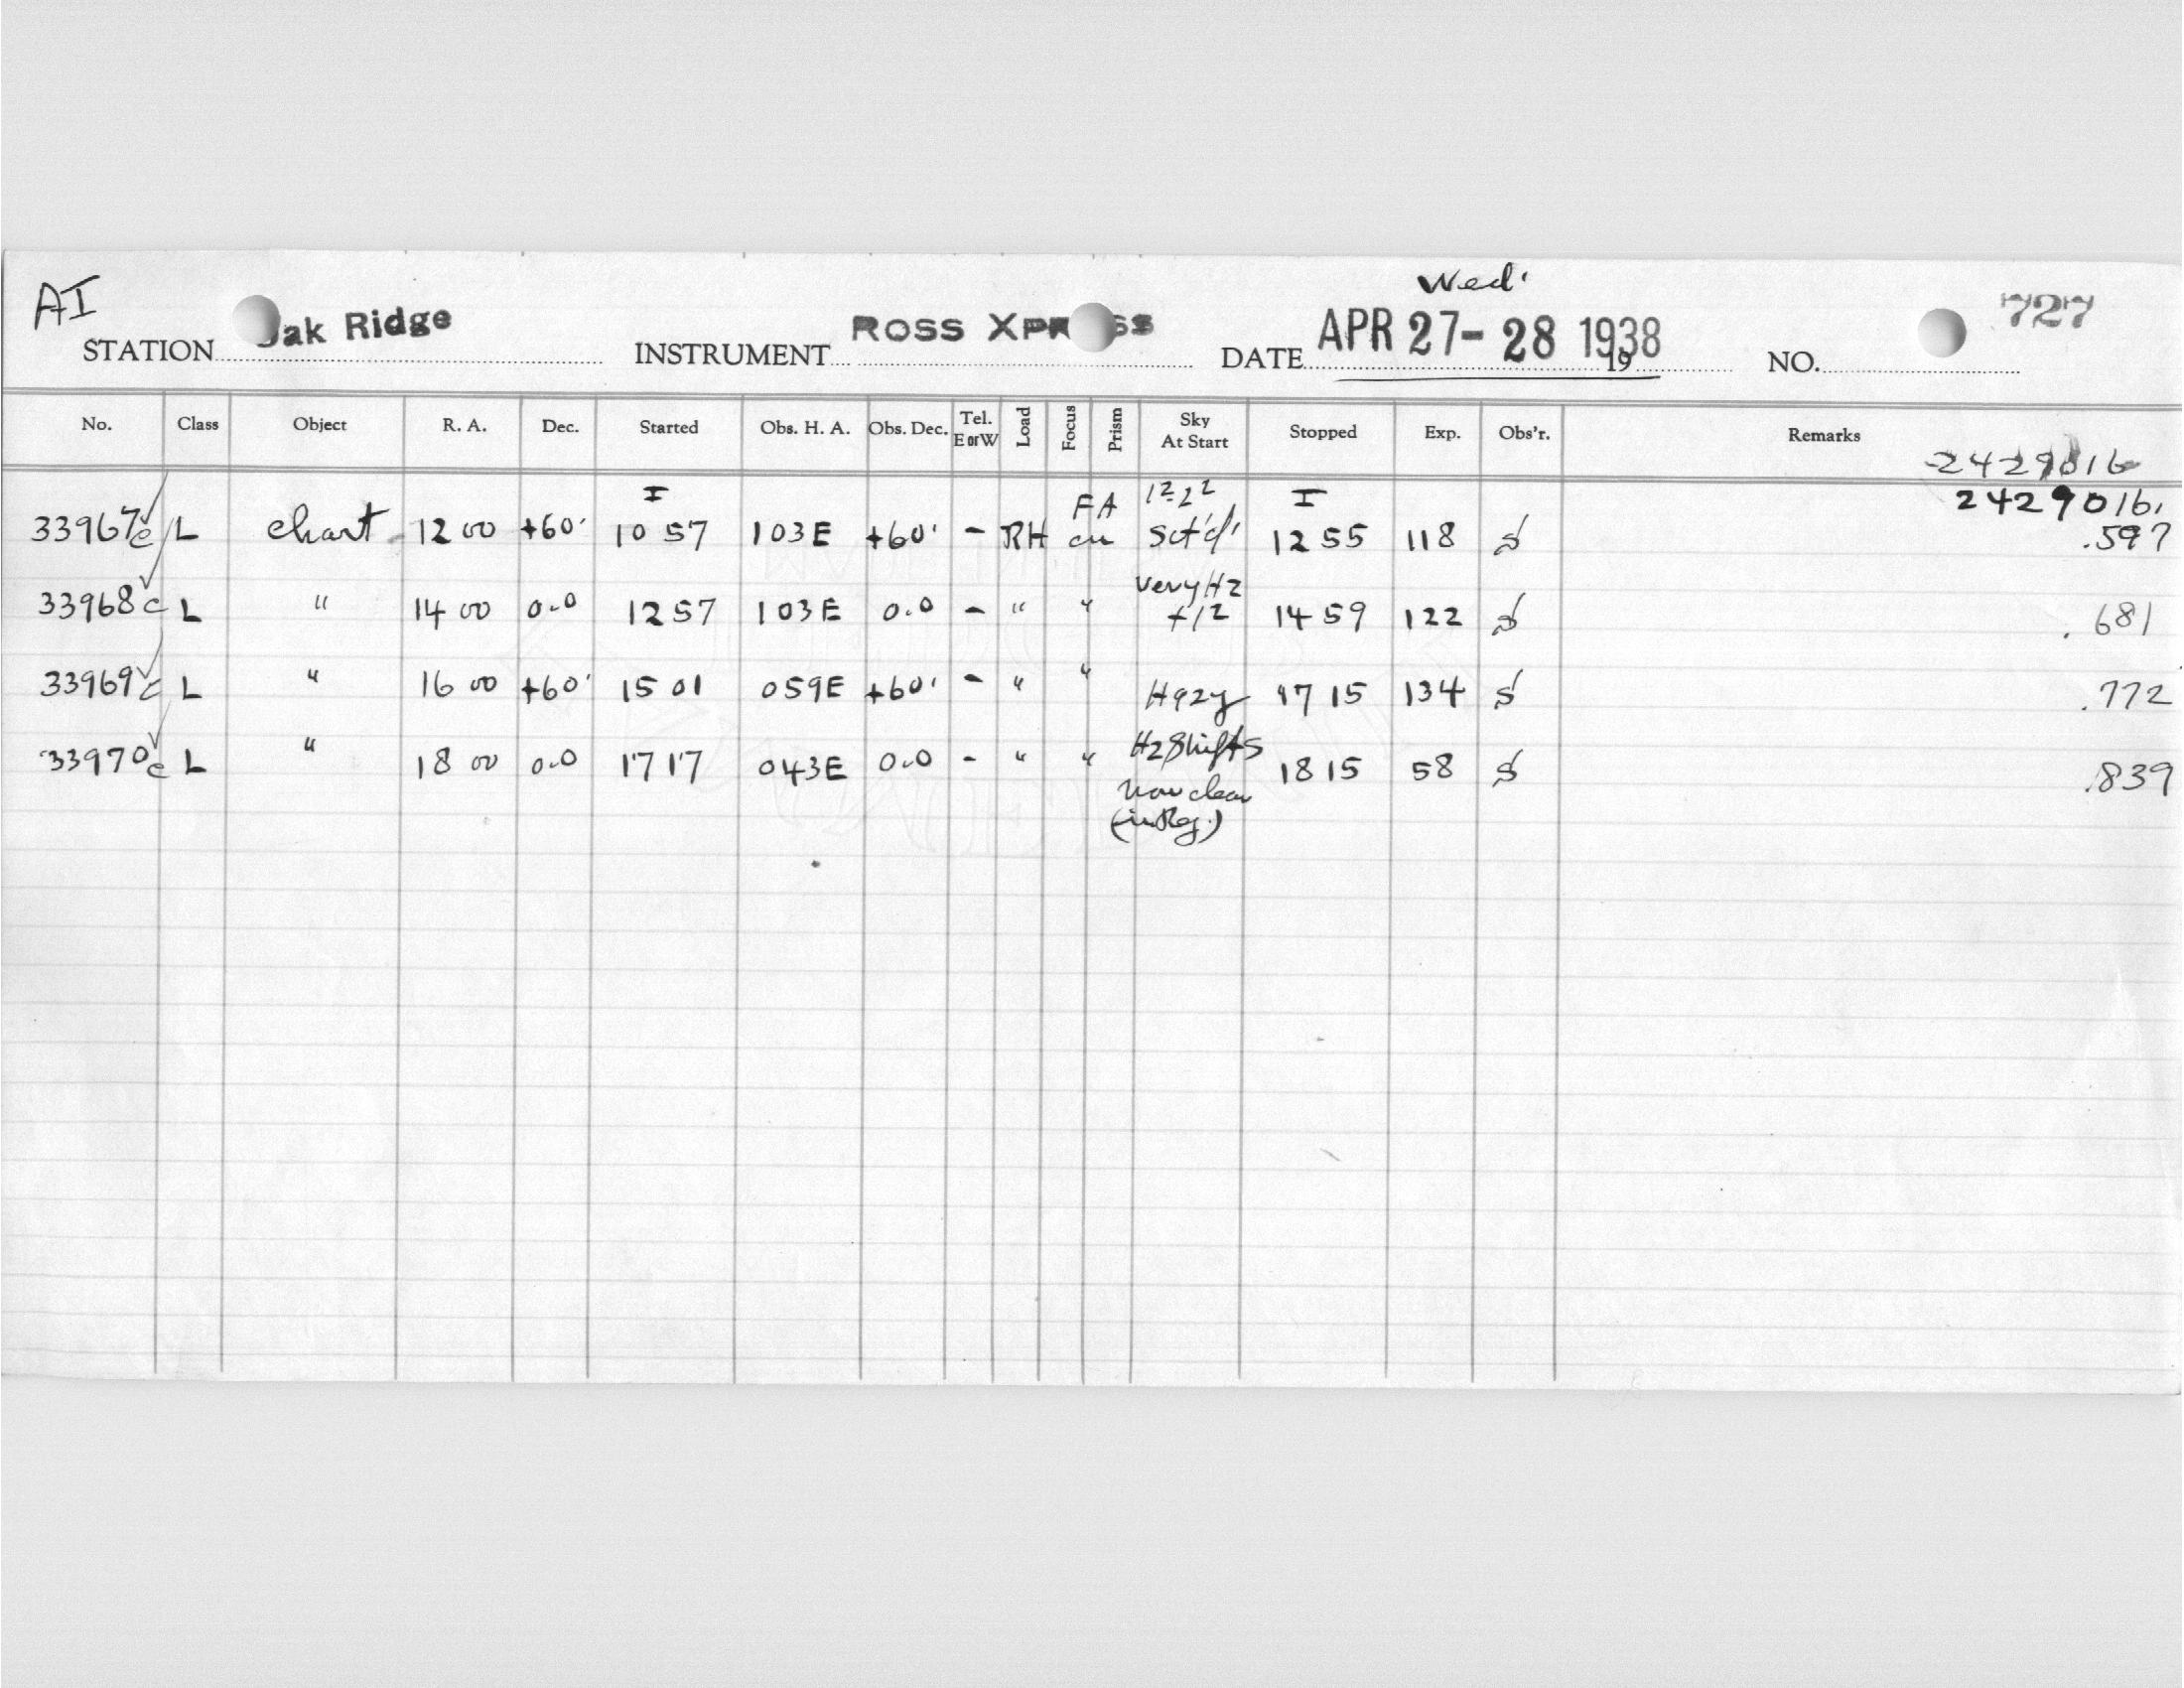 AI Wed'
STATION Oak Ridge INSTRUMENT ROSS XPRESS DATE APR 27-28 1938 19 NO. 727
No. Class Object R. A. Dec. Started Obs. H. A. Obs. Dec. Tel. E or W Load Focus Prism Sky At Start Stopped Exp. Obs'r. Remarks
2429016
I FA I 2429016.
33967c L chart 12 00 +60' 10 57 103E +60' - RH cn Sct'd' 12 55 118 S .597
very Hz
33968c L " 14 00 0.0 12 57 103E 0.0 - " " +12 14 59 122 S .681
33969c L " 16 00 +60' 15 01 059E +60' - " " Hazy 17 15 134 S .772
33970c L " 18 00 0.0 17 17 043E 0.0 - " " Hz Shifts 18 15 58 S .839
Now clear
(in Reg.)